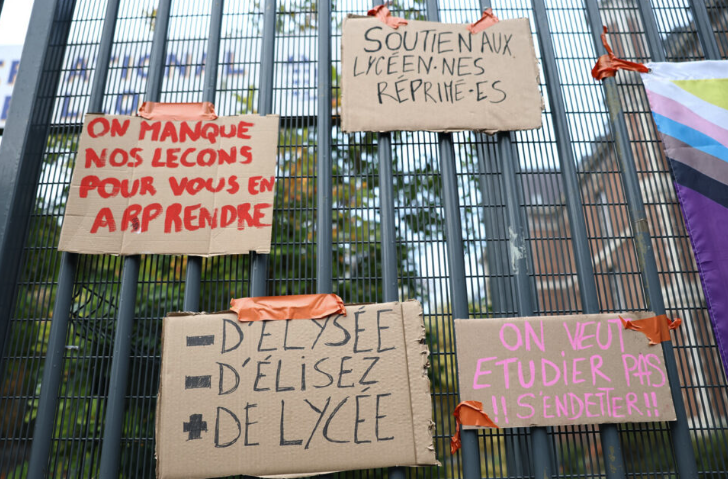 SOUTIEN AUX
LYCÉEN·NES
RÉPRIMÉ·ES
ON MANQUE
NOS LECONS
POUR VOUS EN
APPRENDRE
- D'ELYSÉE
- D'ÉLISEZ
+ DE LYCÉE
ON VEUT
ETUDIER PAS
!! S'ENDETTER !!